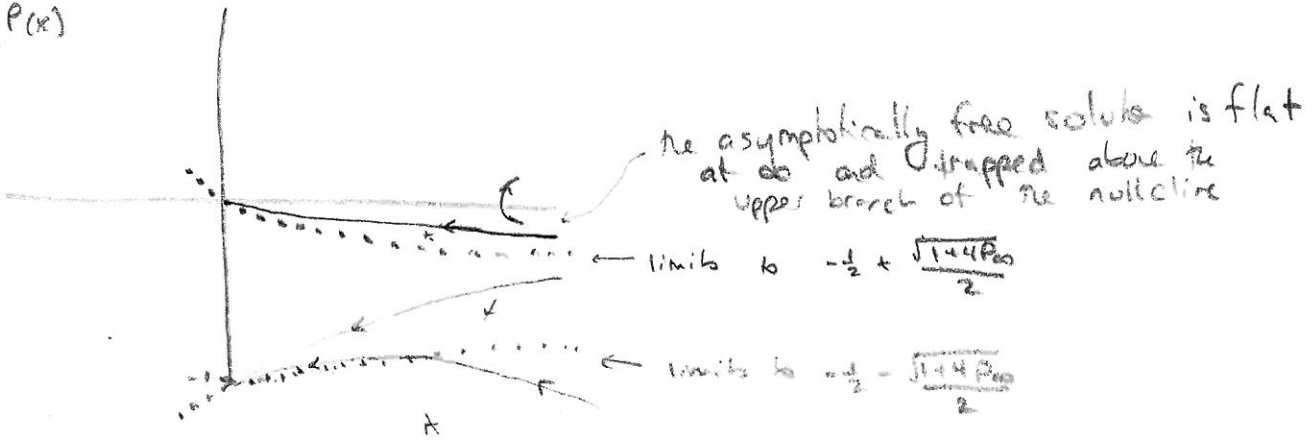 P(x)
the asymptotically free solution is flat
at ∞ and trapped above the
upper branch of the nullcline
← limits to -½ + √(1+4P∞)/2
← limits to -½ - √(1+4P∞)/2
x